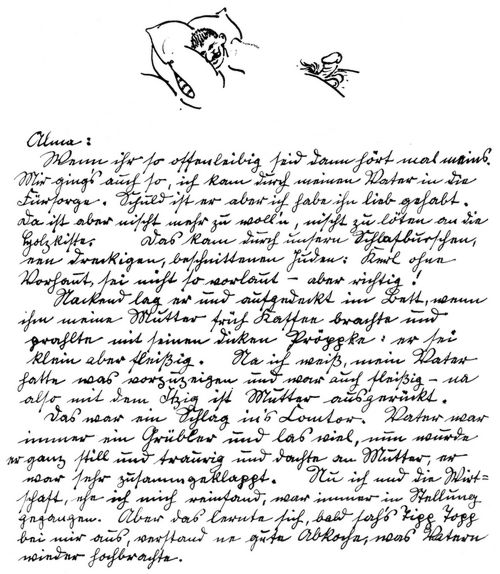 Alma:
Wenn ihr so offenleibig seid dann hört mal meins.
Mir ging's auch so, ich kam durch meinen Vater in die
Fürsorge. Schuld ist er aber ich habe ihn lieb gehabt.
Da ist aber nischt mehr zu woll'n, nischt zu löten an die
Holzkiste. Das kam durch unsern Schlafburschen,
een dreckigen, beschnittenen Juden: Kerl ohne
Vorhaut, sei nicht so vorlaut – aber richtig!
Nackend lag er und aufgedeckt im Bett, wenn
ihm meine Mutter früh Kaffee brachte und
prahlte mit seinen dicken Pröppke: er sei
klein aber fleißig. Na ich weiß, mein Vater
hatte was vorzuzeigen und war auch fleißig – na
also mit dem Itzig ist Mutter ausgerückt.
Das war ein Schlag in's Comtor. Vater war
immer ein Grübler und las viel, nun wurde
er ganz still und traurig und dachte an Mutter, er
war sehr zusammgeklappt. Nu ich und die Wirt-
schaft, ehe ich mich reinfand, war immer in Stellung
gegangen. Aber das lernte sich, bald sah's Tipp Topp
bei mir aus, verstand ne gute Abkoche, was Vatern
wieder hochbrachte.